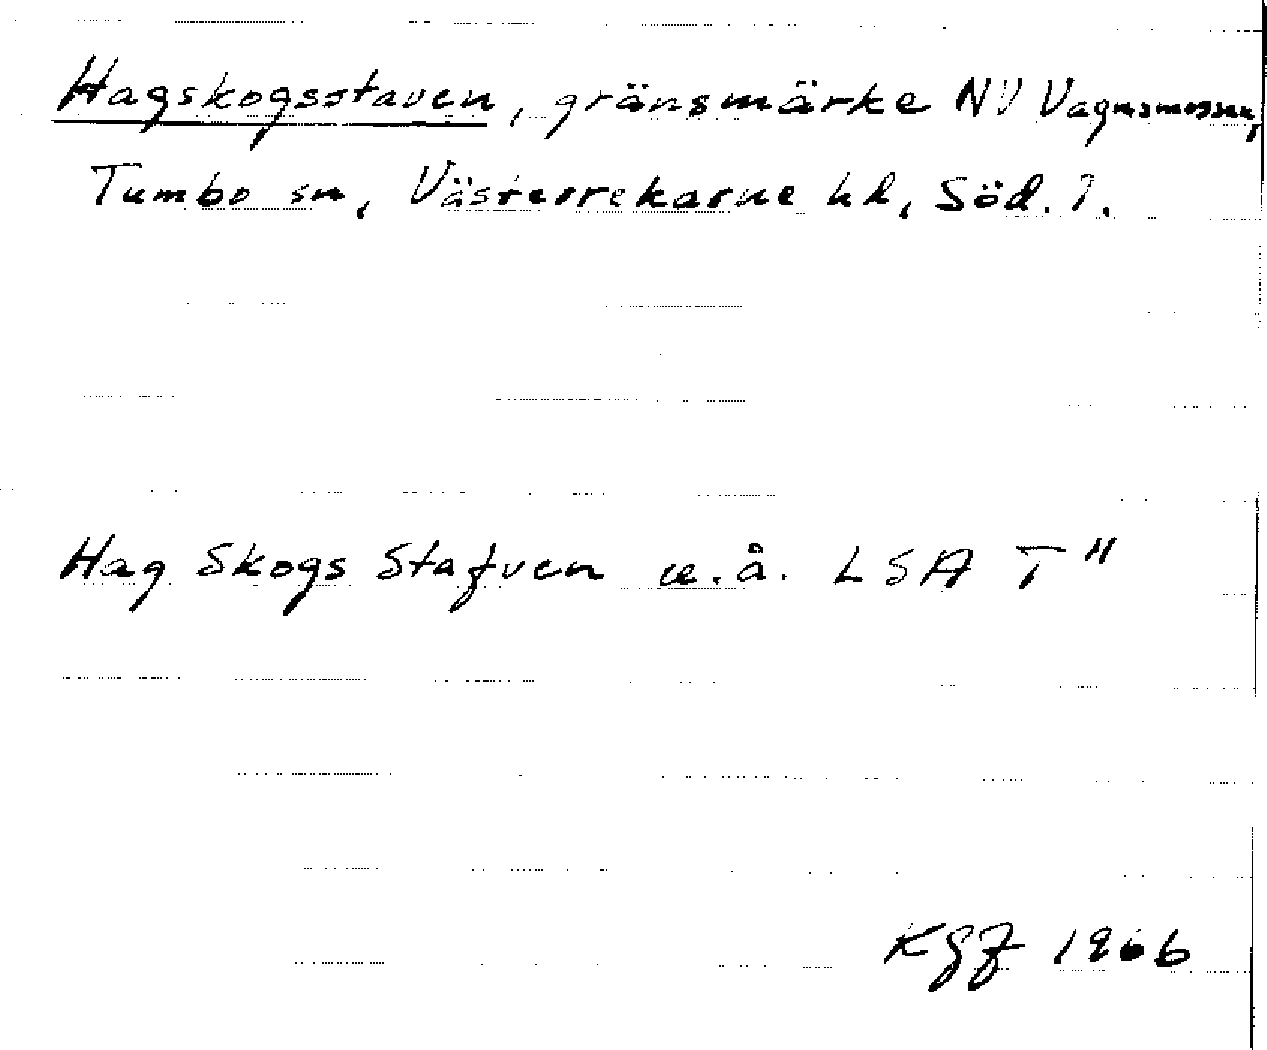 Hagskogsstaven, gränsmärke NV Vagnsmossen,
Tumbo sn, Västerrekarne hd, Söd. l.
Hag Skogs Stafven u.å. LSA T"
KgF 1966